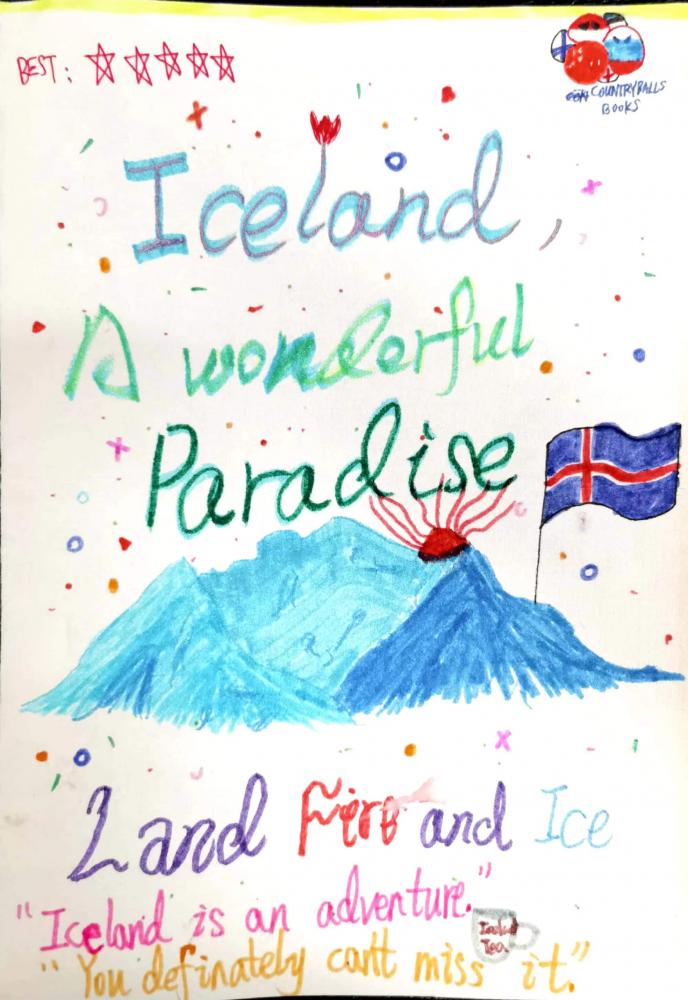 BEST:
COUNTRYBALLS
BOOKS
Iceland,
A wonderful
Paradise
Land Fire and Ice
"Iceland is an adventure."
Tea.
"You definately can't miss it."